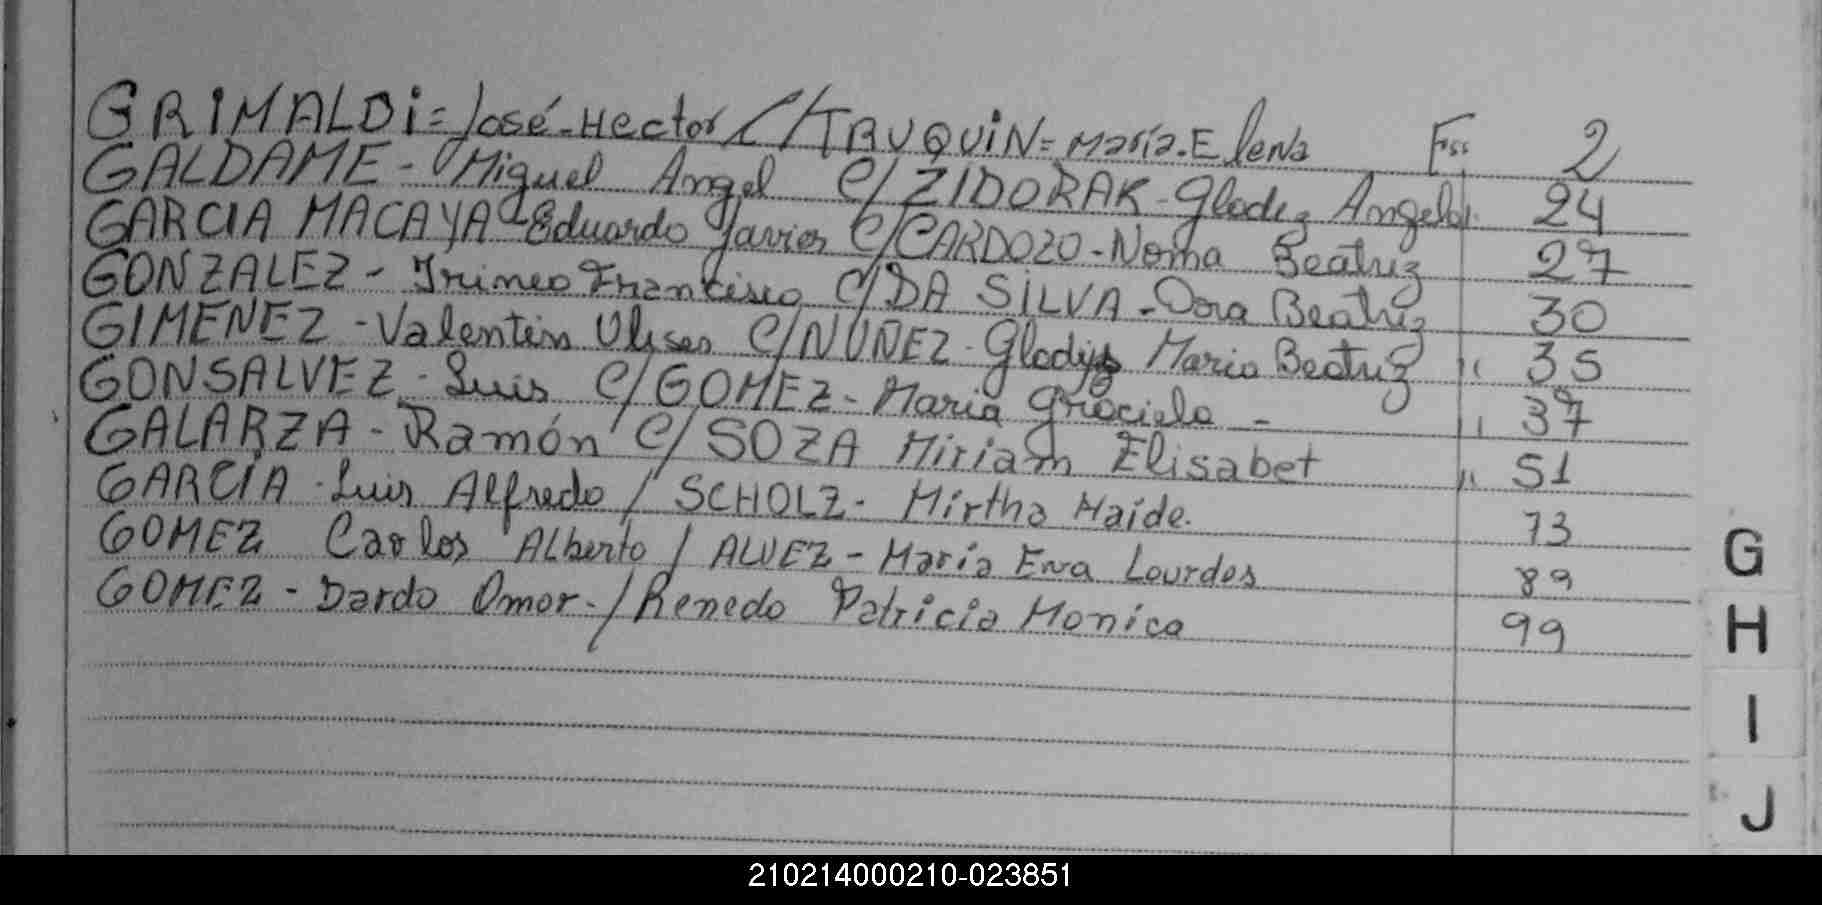 GRIMALDI = José-Hector C/TRUQUIN = María.Elena Fs: 2
GALDAME - Miguel Angel C/ZIDORAK - Gladez Angela 24
GARCIA MACAYA - Eduardo Javier C/CARDOZO - Norma Beatriz 27
GONZALEZ - Irineo Francisco C/DA SILVA - Dora Beatriz 30
GIMENEZ - Valentin Ulises C/NUÑEZ - Gladys Maria Beatriz " 35
GONSALVEZ - Luis C/GOMEZ - Maria Graciela - " 37
GALARZA - Ramón C/SOZA Miriam Elisabet " 51
GARCÍA - Luis Alfredo / SCHOLZ - Mirtha Haide. 73
GOMEZ Carlos Alberto / ALVEZ - María Eva Lourdes 89
GOMEZ - Dardo Omar - / Renedo Patricia Monica 99
G
H
I
J
210214000210-023851